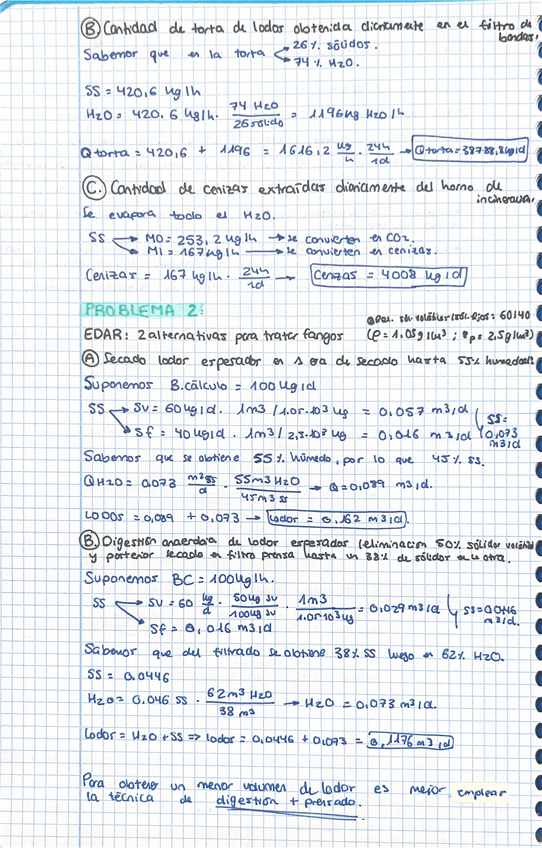 Ⓑ Cantidad de torta de lodos obtenida diariamente en el filtro de
bandas.
Sabemos que en la torta → 26% sólidos.
→ 74% H2O.
SS = 420,6 kg/h
H2O = 420,6 kg/h · 74 H2O / 26 sólido = 1196 kg H2O/h
Q torta = 420,6 + 1196 = 1616,2 kg/h · 24h/1d → Q torta = 38788,8 kg/d
Ⓒ Cantidad de cenizas extraídas diariamente del horno de
incineración.
Se evapora todo el H2O.
SS → MO = 253,2 kg/h → se convierten en CO2.
→ MI = 167 kg/h → se convierten en cenizas.
Cenizas = 167 kg/h · 24h/1d → Cenizas = 4008 kg/d
PROBLEMA 2:
sól. volátiles/sól. fijos: 60/40
EDAR: 2 alternativas para tratar fangos (ρ = 1.05 g/cm³ ; ρp = 2,5 g/cm³)
Ⓐ Secado lodos espesados en 1 era de secado hasta 55% humedad:
Suponemos B.cálculo = 100 kg/d
SS → SV = 60 kg/d · 1m3/1.05·10³ kg = 0,057 m3/d
→ Sf = 40 kg/d · 1m3/2,5·10³ kg = 0,016 m3/d
SS = 0,073 m3/d
Sabemos que se obtiene 55% húmedo, por lo que 45% SS.
QH2O = 0,073 m³SS/d · 55m3 H2O / 45m3 SS → Q = 0,089 m3/d.
LODOS = 0,089 + 0,073 → Lodos = 0,162 m3/d.
Ⓑ Digestión anaerobia de lodos espesados (eliminación 50% sólidos volátiles)
y posterior secado en filtro prensa hasta un 38% de sólidos en la otra.
Suponemos BC = 100 kg/h.
SS → SV = 60 kg/d · 50 kg SV / 100 kg SV · 1m3 / 1.05·10³ kg = 0,029 m3/d
→ Sf = 0,016 m3/d
SS = 0,0446 m3/d.
Sabemos que del filtrado se obtiene 38% SS luego en 62% H2O.
SS = 0,0446
H2O = 0.046 SS · 62m³ H2O / 38 m³ → H2O = 0,073 m3/d.
Lodos = H2O + SS => lodos = 0,0446 + 0,073 = 0,1176 m3/d
Para obtener un menor volumen de lodos es mejor emplear
la técnica de digestión + prensado.